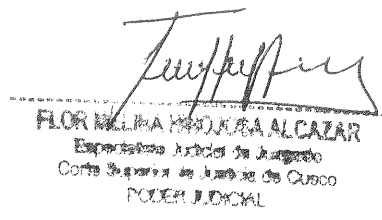 FLOR MELINA HINOJOSA ALCAZAR
Especialista Judicial de Juzgado
Corte Superior de Justicia de Cusco
PODER JUDICIAL